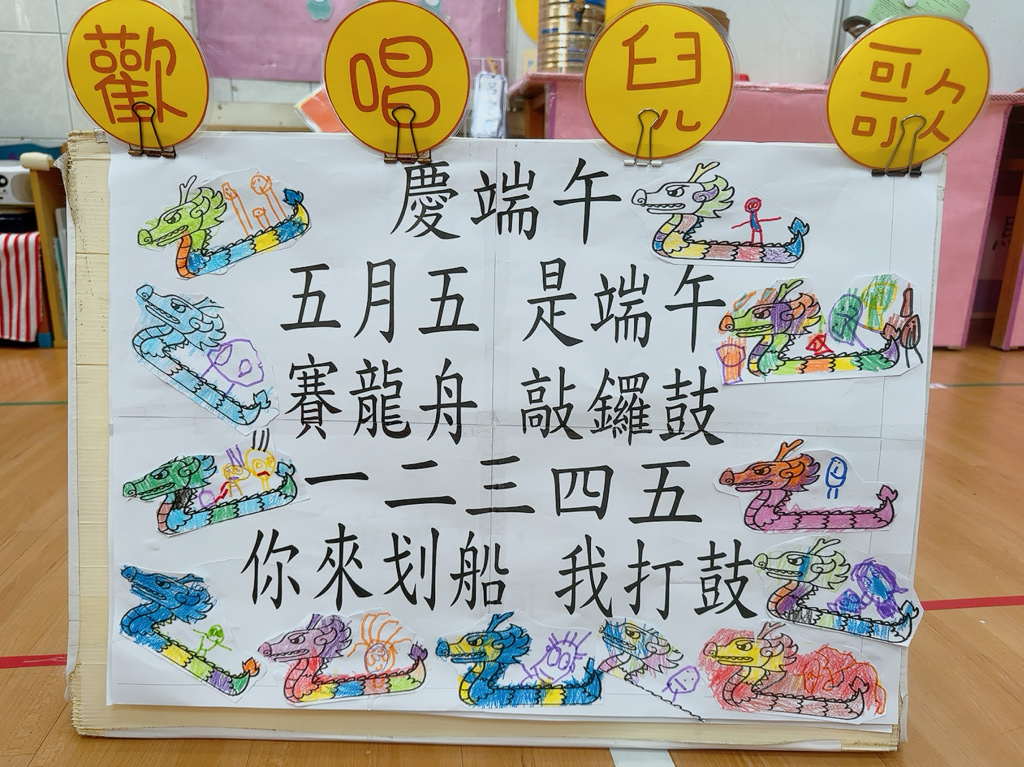 歡唱兒歌
慶端午
五月五 是端午
賽龍舟 敲鑼鼓
一二三四五
你來划船 我打鼓